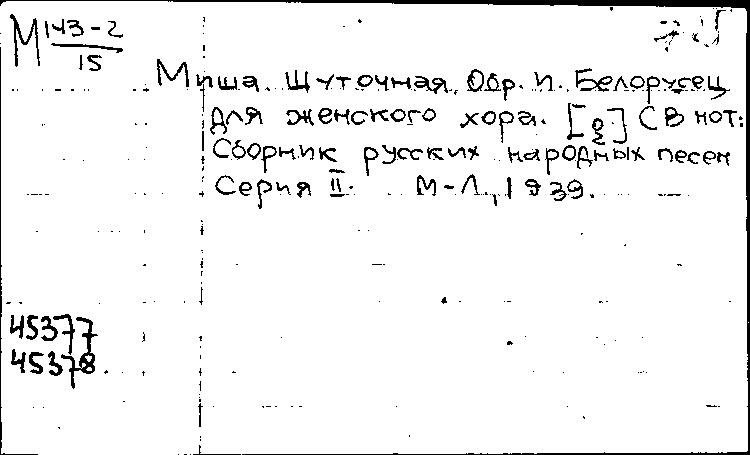 М 143-2
15
Миша. Шуточная. Обр. И. Белорусец
для женского хора. [g] (В нот:
Сборник русских народных песен
Серия II. М-Л, 1939.
45377
45378.